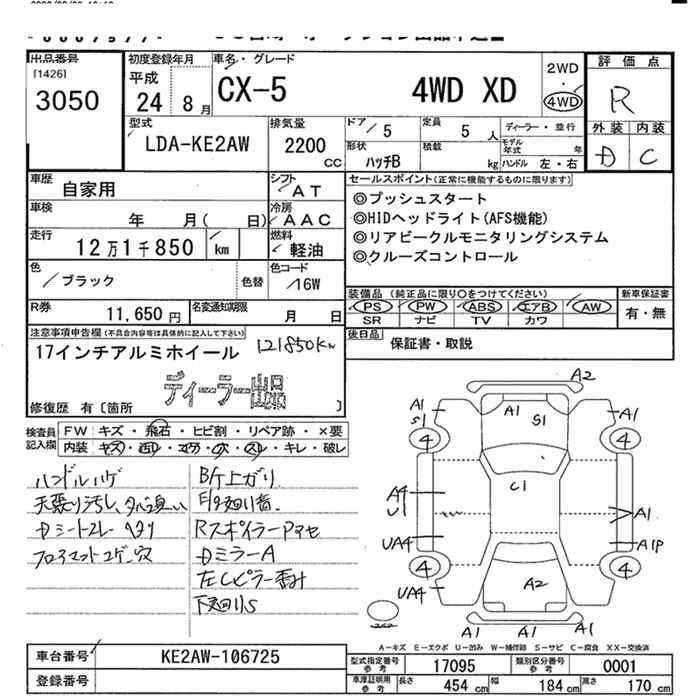 出品番号
[1426]
3050
初度登録年月
平成
24年 8月
車名・グレード
CX-5 4WD XD
2WD
・
4WD
評価点
R
外装 内装
D C
型式
LDA-KE2AW
排気量
2200
CC
ドア
/ 5
定員
5 人
ディーラー・並行
形状
ハッチB
積載
kg
モデル年式 年
ハンドル 左・右
車歴
自家用
シフト
AT
車検
年 月( 日)
冷房
AAC
走行
12万1千850
km
燃料
軽油
色
ブラック
色替
色コード
16W
R券
11,650円
名変通知期限
月 日
セールスポイント(正常に機能するものに限ります)
◎プッシュスタート
◎HIDヘッドライト(AFS機能)
◎リアビークルモニタリングシステム
◎クルーズコントロール
装備品 (純正品に限り○をつけてください)
PS PW ABS エアB AW
SR ナビ TV カワ
新車保証書
有・無
後日品
保証書・取説
注意事項申告欄(不具合内容等は具体的に記入して下さい)
17インチアルミホイール 121850Km
ディーラー出品
修復歴 有[箇所 ]
検査員記入欄
FW キズ・飛石・ヒビ割・リペア跡・×要
内装 キズ・
・キレ・破レ
ハンドルハゲ
Dシートスレ ヘタリ
フロアマットコゲ穴
B/ケ上ガリ
Rスポイラー
DミラーA
下廻りS
A2
A1
S1
A1
S1
A1
4
4
C1
A4
U1
A1
UA4
A1P
4
4
UA4
A2
A1 A1 A1
A-キズ E-エクボ U-凹み W-補修跡 S-サビ C-腐食 XX-交換済
車台番号
KE2AW-106725
型式指定番号
参考
17095
類別区分番号
参考
0001
車庫証明用
参考
長さ 454 cm
幅 184 cm
高さ 170 cm